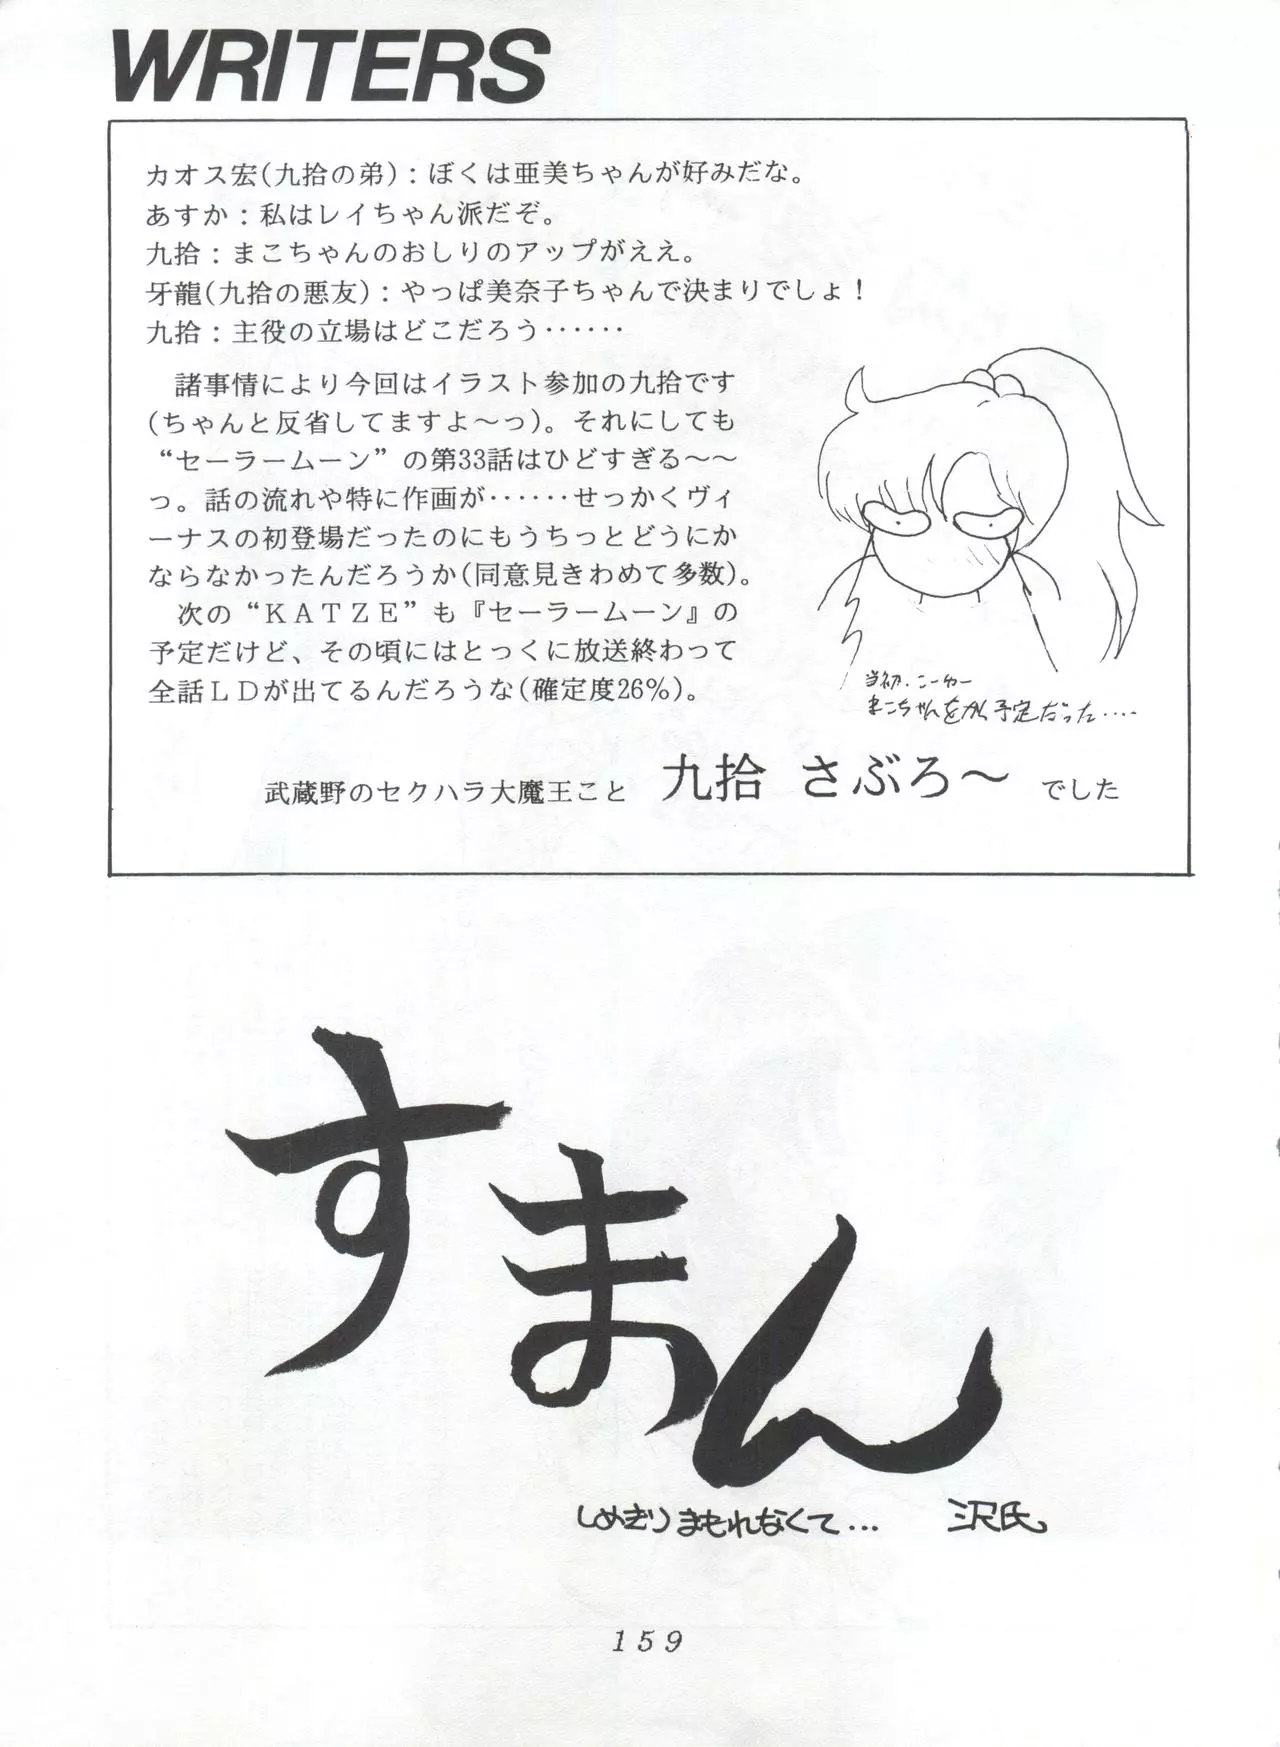 WRITERS
カオス宏(九拾の弟)：ぼくは亜美ちゃんが好みだな。
あすか：私はレイちゃん派だぞ。
九拾：まこちゃんのおしりのアップがええ。
牙龍(九拾の悪友)：やっぱ美奈子ちゃんで決まりでしょ！
九拾：主役の立場はどこだろう‥‥‥
諸事情により今回はイラスト参加の九拾です
(ちゃんと反省してますよ～っ)。それにしても
“セーラームーン”の第33話はひどすぎる～～
っ。話の流れや特に作画が‥‥‥せっかくヴィ
ーナスの初登場だったのにもうちっとどうにか
ならなかったんだろうか(同意見きわめて多数)。
次の“ＫＡＴＺＥ”も『セーラームーン』の
予定だけど、その頃にはとっくに放送終わって
全話ＬＤが出てるんだろうな(確定度26%)。
当初、こーゆー
まこちゃんをかく予定だった....
武蔵野のセクハラ大魔王こと 九拾 さぶろ～ でした
すまん
しめきりまもれなくて... 三沢氏
159